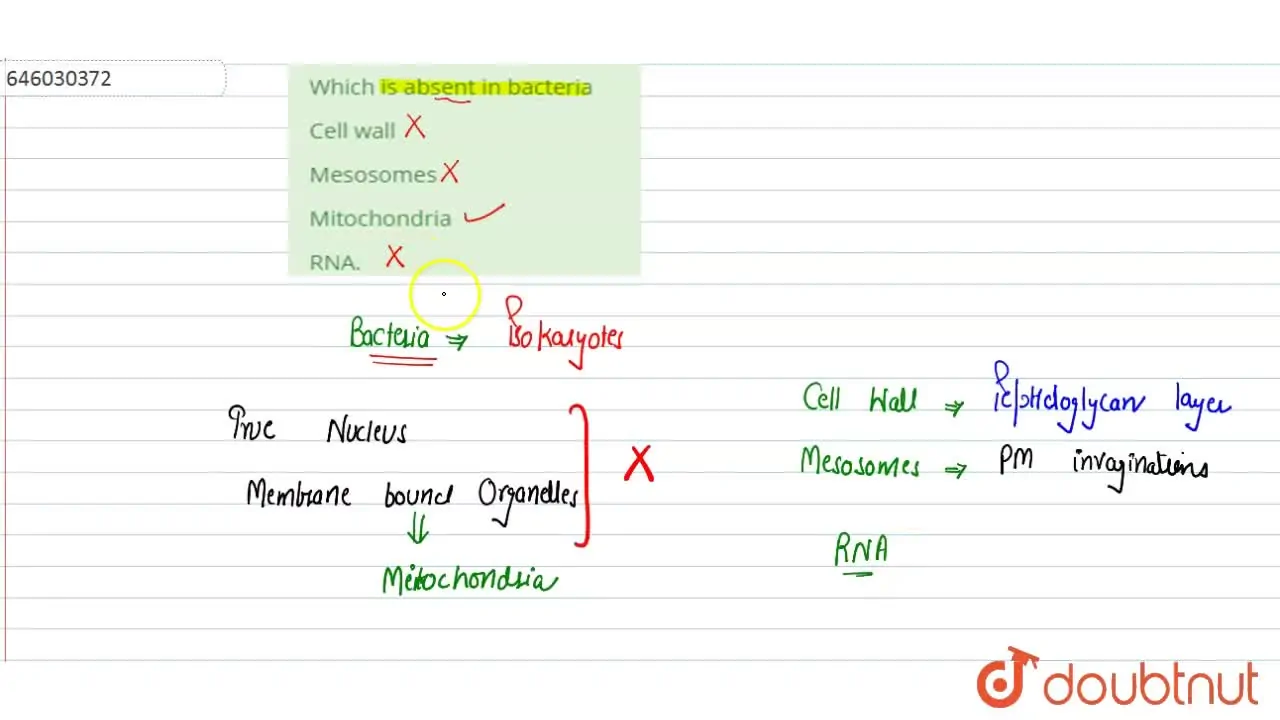 646030372
Which is absent in bacteria
Cell wall X
Mesosomes X
Mitochondria ✓
RNA. X
Bacteria ⇒ Prokaryotes
True Nucleus
Membrane bound Organelles
X
⇓
Mitochondria
Cell Wall ⇒ Peptidoglycan layer
Mesosomes ⇒ PM invaginations
RNA
doubtnut